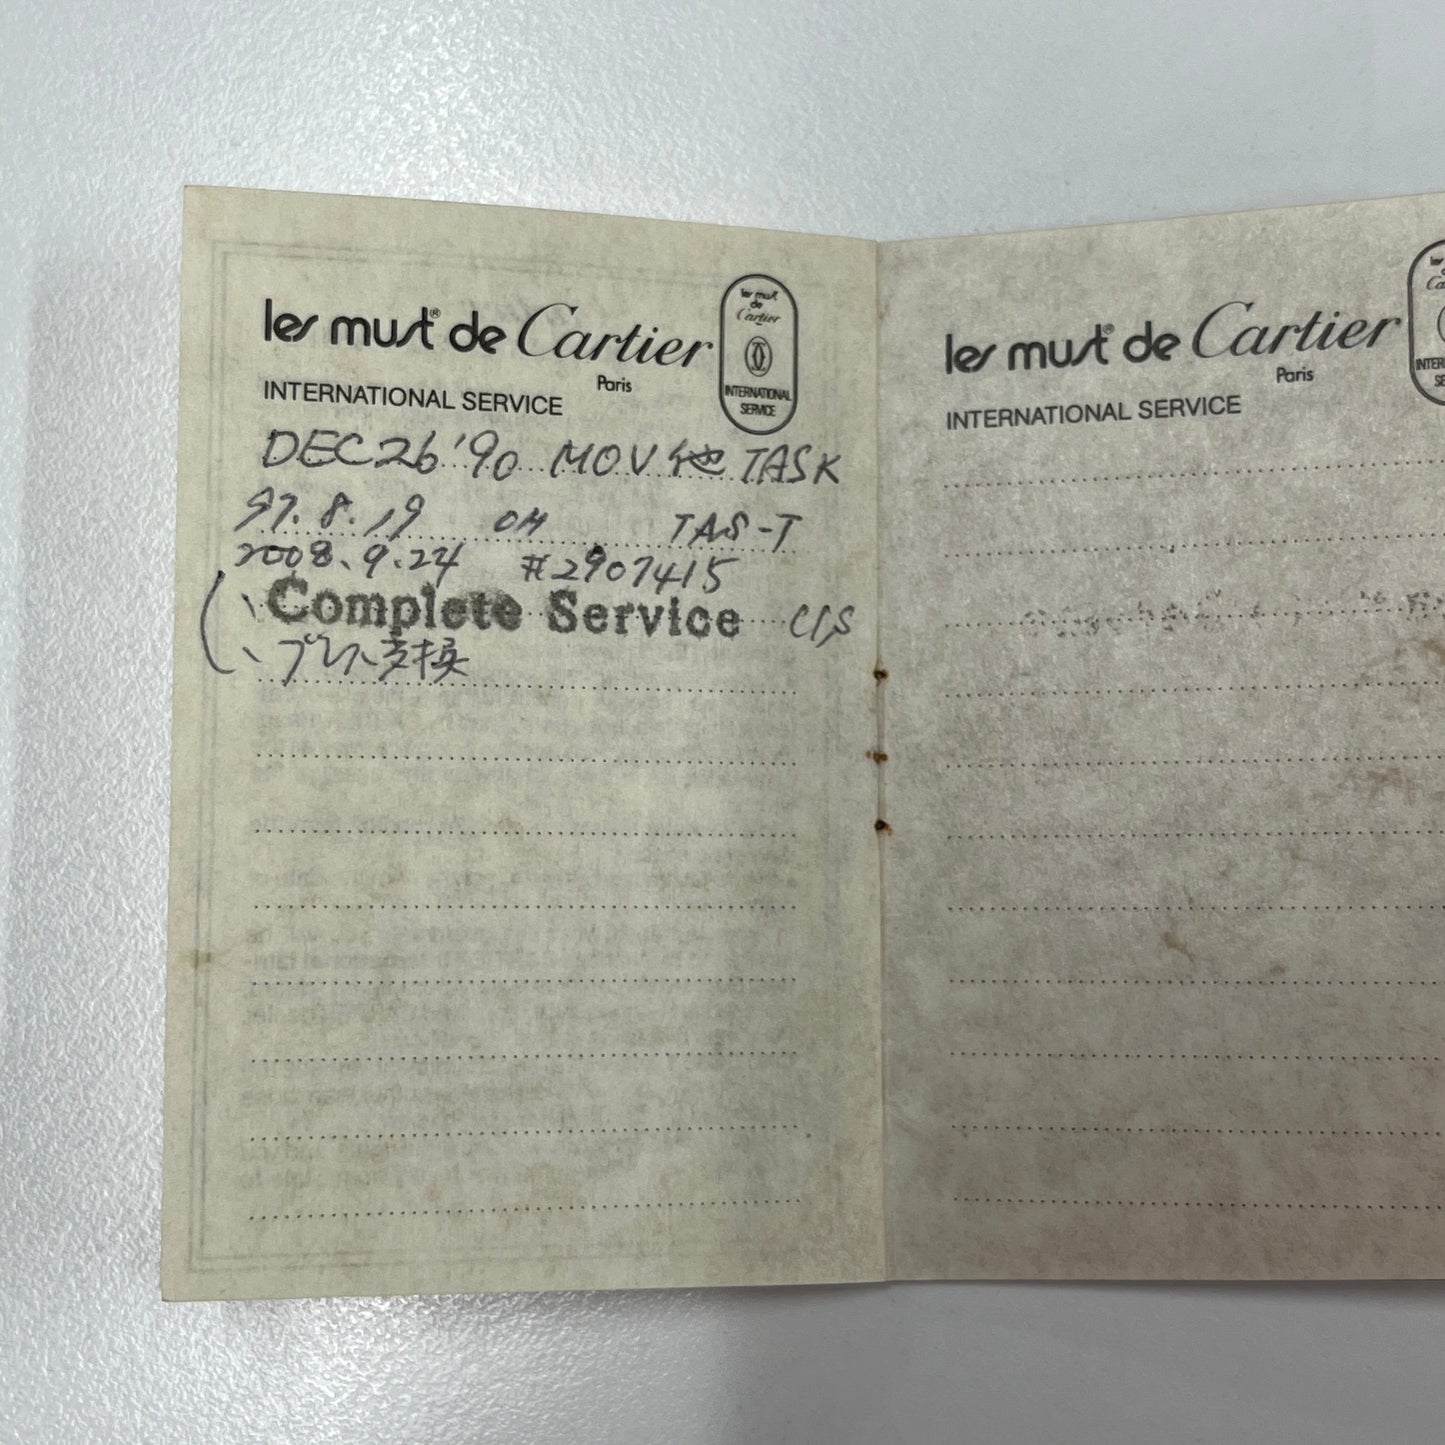 les must® de Cartier
Paris
INTERNATIONAL SERVICE
les must
de
Cartier
INTERNATIONAL
SERVICE
DEC 26 '90 MOV 他 TASK
97.8.19 OH TAS-T
2008.9.24 #2907415
Complete Service CIS
ブレス交換
les must® de Cartier
Paris
INTERNATIONAL SERVICE